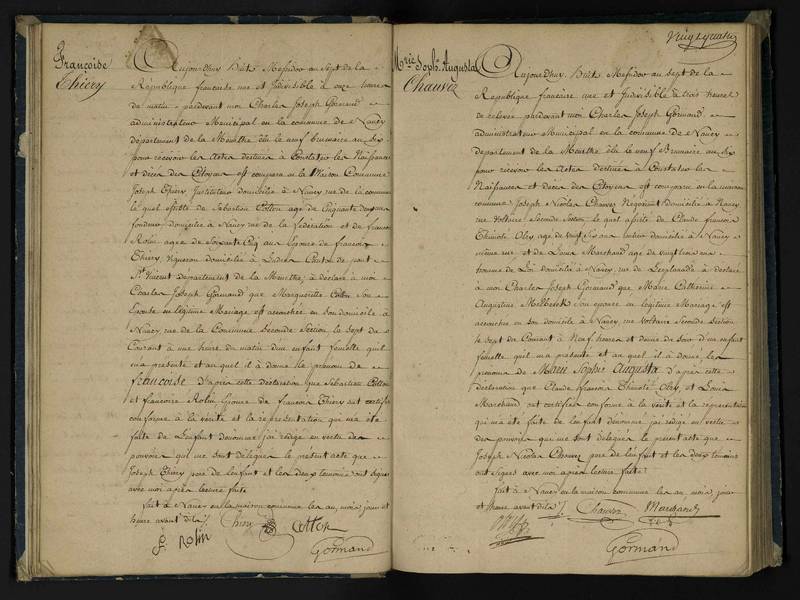 Françoise
Thiery
Aujourdhuy Huit Messidor au Sept de la
République francoise une et Indivisible à onze heures
de matin pardevant moi Charles Joseph Gormand
administrateur Municipal en la commune de Nancy
département de la Meurthe élu le neuf brumaire an Six
pour recevoir les actes destinés à Constater les Naissances
et décès des Citoyens est comparu en la Maison Commune
Joseph Thiery Instituteur domicilié à Nancy rue de la commune
le quel assisté de Sebastien Cotton agé de Cinquante
fondeur domicilié à Nancy rue de la féderation et de
Rolin agée de Soixante Cinq ans Epouse de francois
Thiery vigneron domicilié à Ludres Canton de pont
St Vincent département de la Meurthe, à déclaré à moi
Charles Joseph Gormand que Marguerite Cotton Son
Epouse en légitime Mariage est accouchée en son domicile à
Nancy rue de la Commune Seconde Section le Sept du
Courant à une heure du matin d'un enfant femelle quil
ma présenté et au quel il à donné le prénom de
françoise D'après cette déclaration que Sebastien Cotton
et francoise Rolin Epouse de francois Thiery ont certifié
conforme à la vérité et la représentation qui ma été
faite de L'enfant denommé j'ai rédigé en vertu des
pouvoirs qui me sont délégués le présent acte que
Joseph Thiery pere de lenfant et les deux temoins ont signé
avec moi après lecture faite
fait à Nancy en la maison commune les an, mois jour et
heure avant dits
Thiery Cotton
f. Rolin
Gormand
Vingt quatre
Mrie Soph. Augusta
Chauvez
Aujourdhuy Huit Messidor au sept de la
République francaise une et Indivisible à trois heures
de relevée pardevant moi Charles Joseph Gormand
administrateur Municipal en la commune de Nancy
département de la Meurthe élu le neuf Brumaire an Six
pour recevoir les Actes destinés à Constater les
Naissances et décès des Citoyens est comparu en la maison
commune Joseph Nicolas Chauvez Négociant Domicilié à Nancy
rue Voltaire Seconde Section le quel assisté de Claude francois
Thimoté Olry, agé de vingt Six ans domicilié à Nancy
même rue et de Louis Marchand agé de vingt un ans
homme de Loi domicilié à Nancy, rue de Lesplanade à déclaré
à moi Charles Joseph Gormand que Marie Catherine
Augustine son épouse en légitime Mariage est
accouchée en son domicile à Nancy rue voltaire Seconde Section
le sept du Courant à Neuf heures et demie du Soir d'un enfant
femelle quil ma présenté et au quel il à donné les
prénoms de Marie Sophie Augusta d'après cette
déclaration que Claude francois Thimoté Olry, et Louis
Marchand, ont certifiée conforme à la vérité et la représentation
qui ma été faite de lenfant dénommé j'ai rédigé en vertu
des pouvoirs qui me sont délégués le présent acte que
Joseph Nicolas Chauvez pere de lenfant et les deux temoins
ont signés avec moi après lecture faite
fait à Nancy en la maison commune les an, mois jour
et heure avant dits
Chauvez Marchand
Gormand